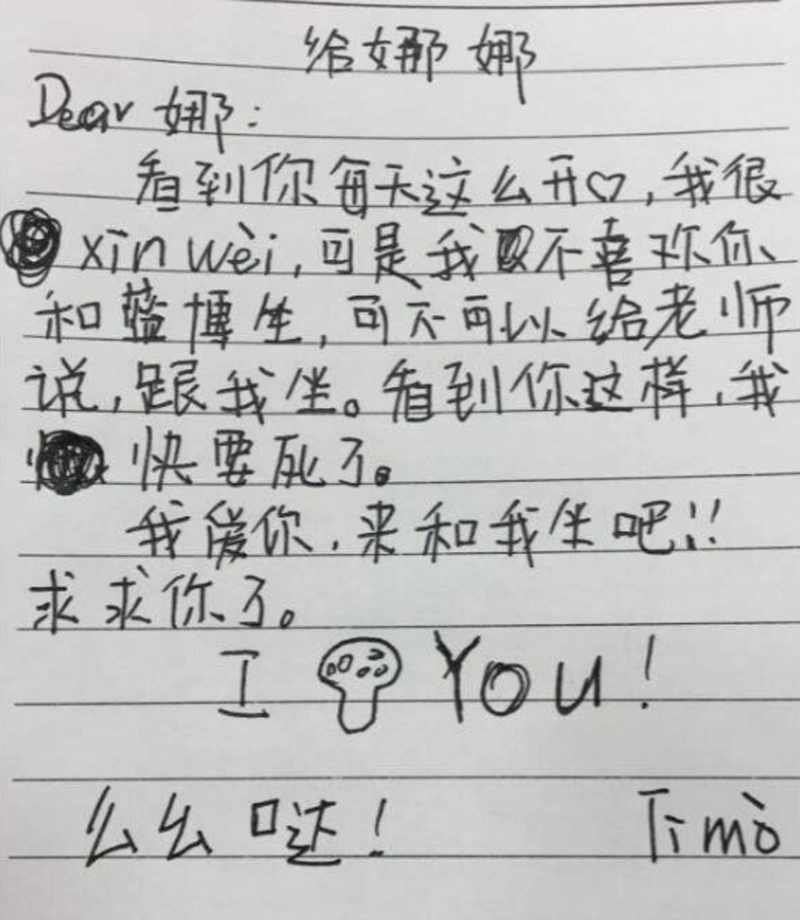 给娜娜
Dear 娜:
看到你每天这么开♡,我很
xīn wèi,可是我又不喜欢你
和蓝博坐,可不可以给老师
说,跟我坐。看到你这样,我
快要死了。
我爱你,来和我坐吧!!
求求你了。
I You!
么么哒!
Timò